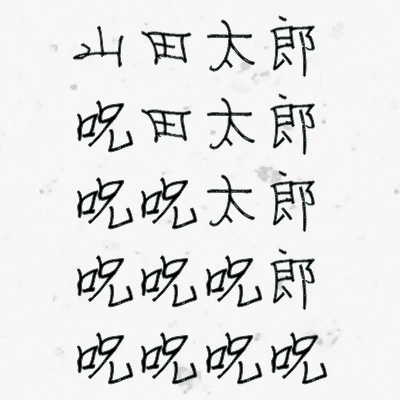 山田太郎
呪田太郎
呪呪太郎
呪呪呪郎
呪呪呪呪